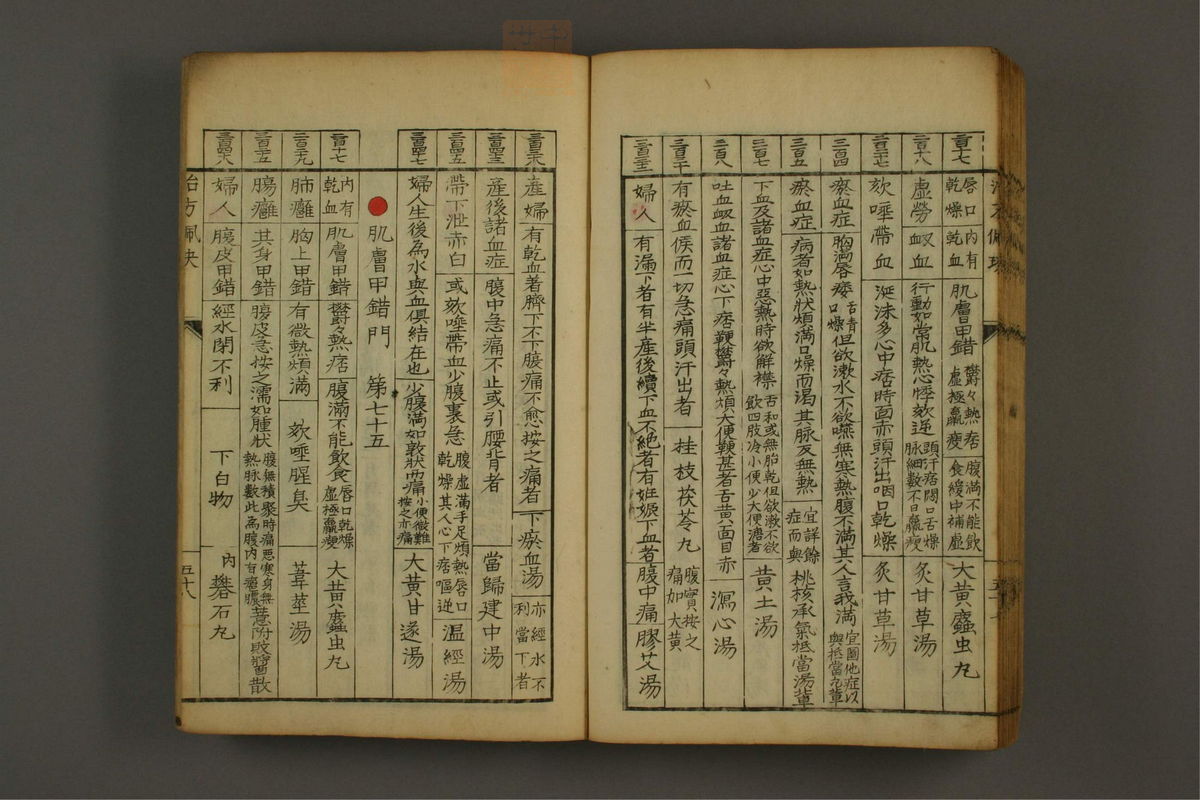 二百十七 唇口內有乾燥乾血 肌膚甲錯 鬱々熱痞虛極羸瘦 腹滿不能飲食緩中補虛 大黃䗪虫丸
二百十八 虛勞 衂血 行動如常肌熱心悸欬逆 頭汗痞悶口舌燥脉細數不日羸瘦 炙甘草湯
欬唾帶血 涎沫多心中痞時面赤頭汗出咽口乾燥 炙甘草湯
三百四 瘀血症 胸滿唇痿 舌青口燥 但欲漱水不欲嚥無寒熱腹不滿其人言我滿 宜圖他症以與抵當丸輩
三百五 瘀血症 病者如熱狀煩滿口燥而渴其脉反無熱 宜詳餘症而與 桃核承氣抵當湯輩
三百七 下血及諸血症心中惡熱時欲解襟 舌和或無胎乾但欲漱不欲飲四肢冷小便少大便溏者 黃土湯
三百八 吐血衂血諸血症心下痞鞕鬱々熱煩大便鞕甚者舌黃面目赤 瀉心湯
有瘀血候而一切急痛頭汗出者 桂枝茯苓丸 腹實按之痛加大黃
婦人 有漏下者有半產後續下血不絕者有姙娠下血者腹中痛 膠艾湯
產婦 有乾血着臍下不下腹痛不愈按之痛者 下瘀血湯 亦經水不利當下者
產後諸血症 腹中急痛不止或引腰背者 當歸建中湯
三百四五 帶下泄赤白 或欬唾帶血少腹裏急 腹虛滿手足煩熱唇口乾燥其人心下痞嘔逆 溫經湯
三百四七 婦人生後為水與血俱結在也 少腹滿如敦狀而痛 小便微難按之亦痛 大黃甘遂湯
肌膚甲錯門 第七十五
二百十七 內有乾血 肌膚甲錯 鬱々熱痞 腹滿不能飲食 唇口乾燥虛極羸瘦 大黃䗪虫丸
肺癰 胸上甲錯 有微熱煩滿 欬唾腥臭 葦莖湯
腸癰 其身甲錯 腹皮急按之濡如腫狀 腹無積聚時痛惡寒身無熱脉數此為腹內有癰膿 薏附敗醬散
婦人 腹皮甲錯 經水閉不利 下白物 內礬石丸
五十八